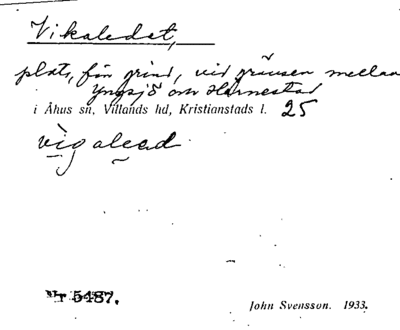 Vikaledet,
plats, för grind, vid gränsen mellan
Yngsjö och Härnestad
i Åhus sn, Villands hd, Kristianstads l. 25
vigalead
Nr 5487.
John Svensson. 1933.